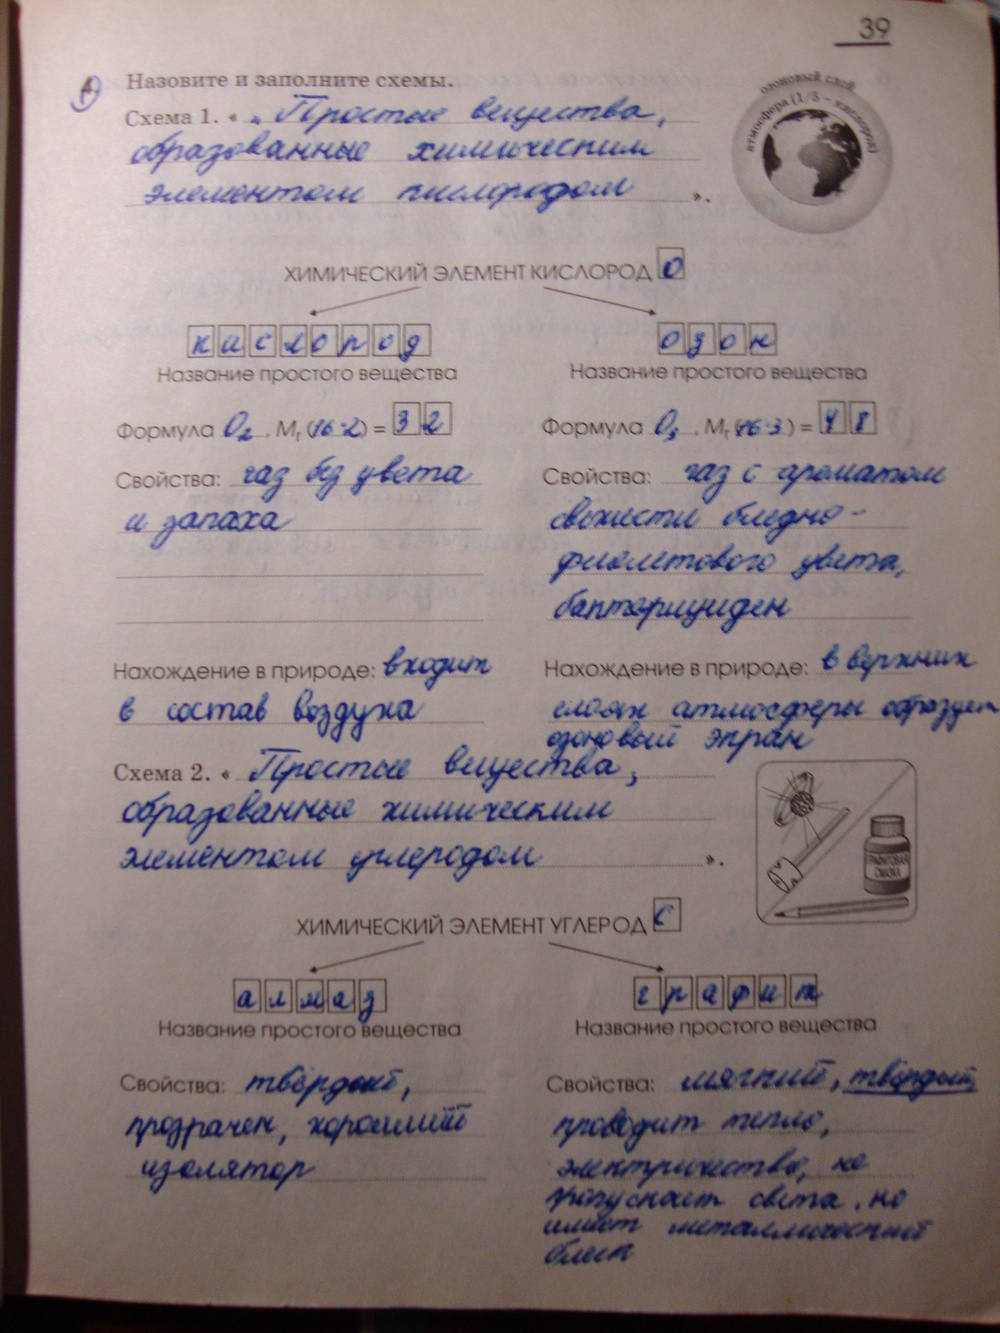 39
Назовите и заполните схемы.
Схема 1. « „ Простые вещества,
образованные химическим
элементом кислородом ».
озоновый слой
атмосфера (1/5 – кислород)
ХИМИЧЕСКИЙ ЭЛЕМЕНТ КИСЛОРОД O
кислород озон
Название простого вещества Название простого вещества
Формула O₂, Mr (16·2) = 32 Формула O₃, Mr (16·3) = 48
Свойства: газ без цвета Свойства: газ с ароматом
и запаха свежести бледно-
фиолетового цвета,
бактерициден
Нахождение в природе: входит Нахождение в природе: в верхних
в состав воздуха слоях атмосферы образует
озоновый экран
Схема 2. « Простые вещества,
образованные химическим
элементом углеродом ».
ГРАФИТОВАЯ
СМАЗКА
ХИМИЧЕСКИЙ ЭЛЕМЕНТ УГЛЕРОД C
алмаз графит
Название простого вещества Название простого вещества
Свойства: твёрдый, Свойства: мягкий, твёрдый,
прозрачен, хороший проводит тепло,
изолятор электричество, не
пропускает света, но
имеет металлический
блеск